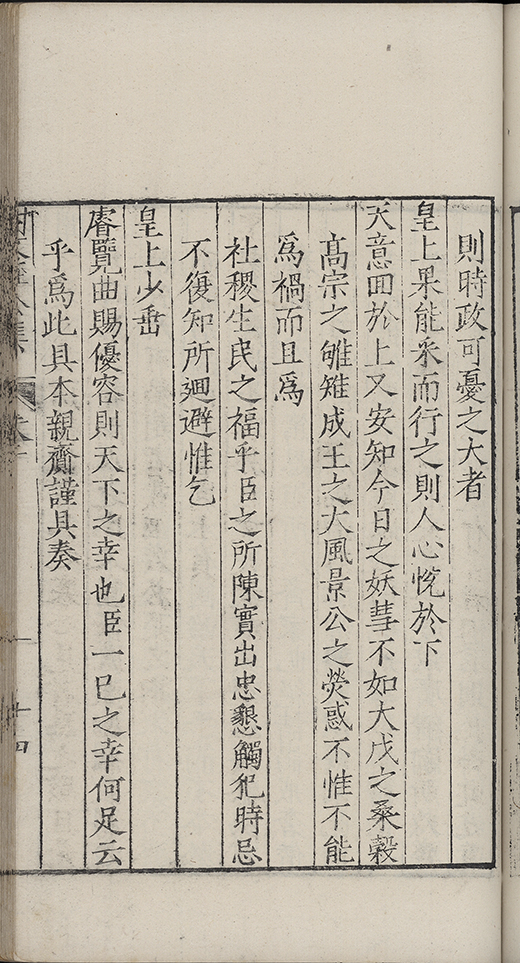 則時政可憂之大者
皇上果能采而行之則人心恱於下
天意囬於上又安知今日之妖彗不如大戊之桑榖
髙宗之雊雉成王之大風景公之熒惑不惟不能
爲禍而且爲
社稷生民之福乎臣之所陳實出忠懇觸犯時忌
不復知所廻避惟乞
皇上少垂
睿覽曲賜優容則天下之幸也臣一己之幸何足云
乎爲此具本親齎謹具奏